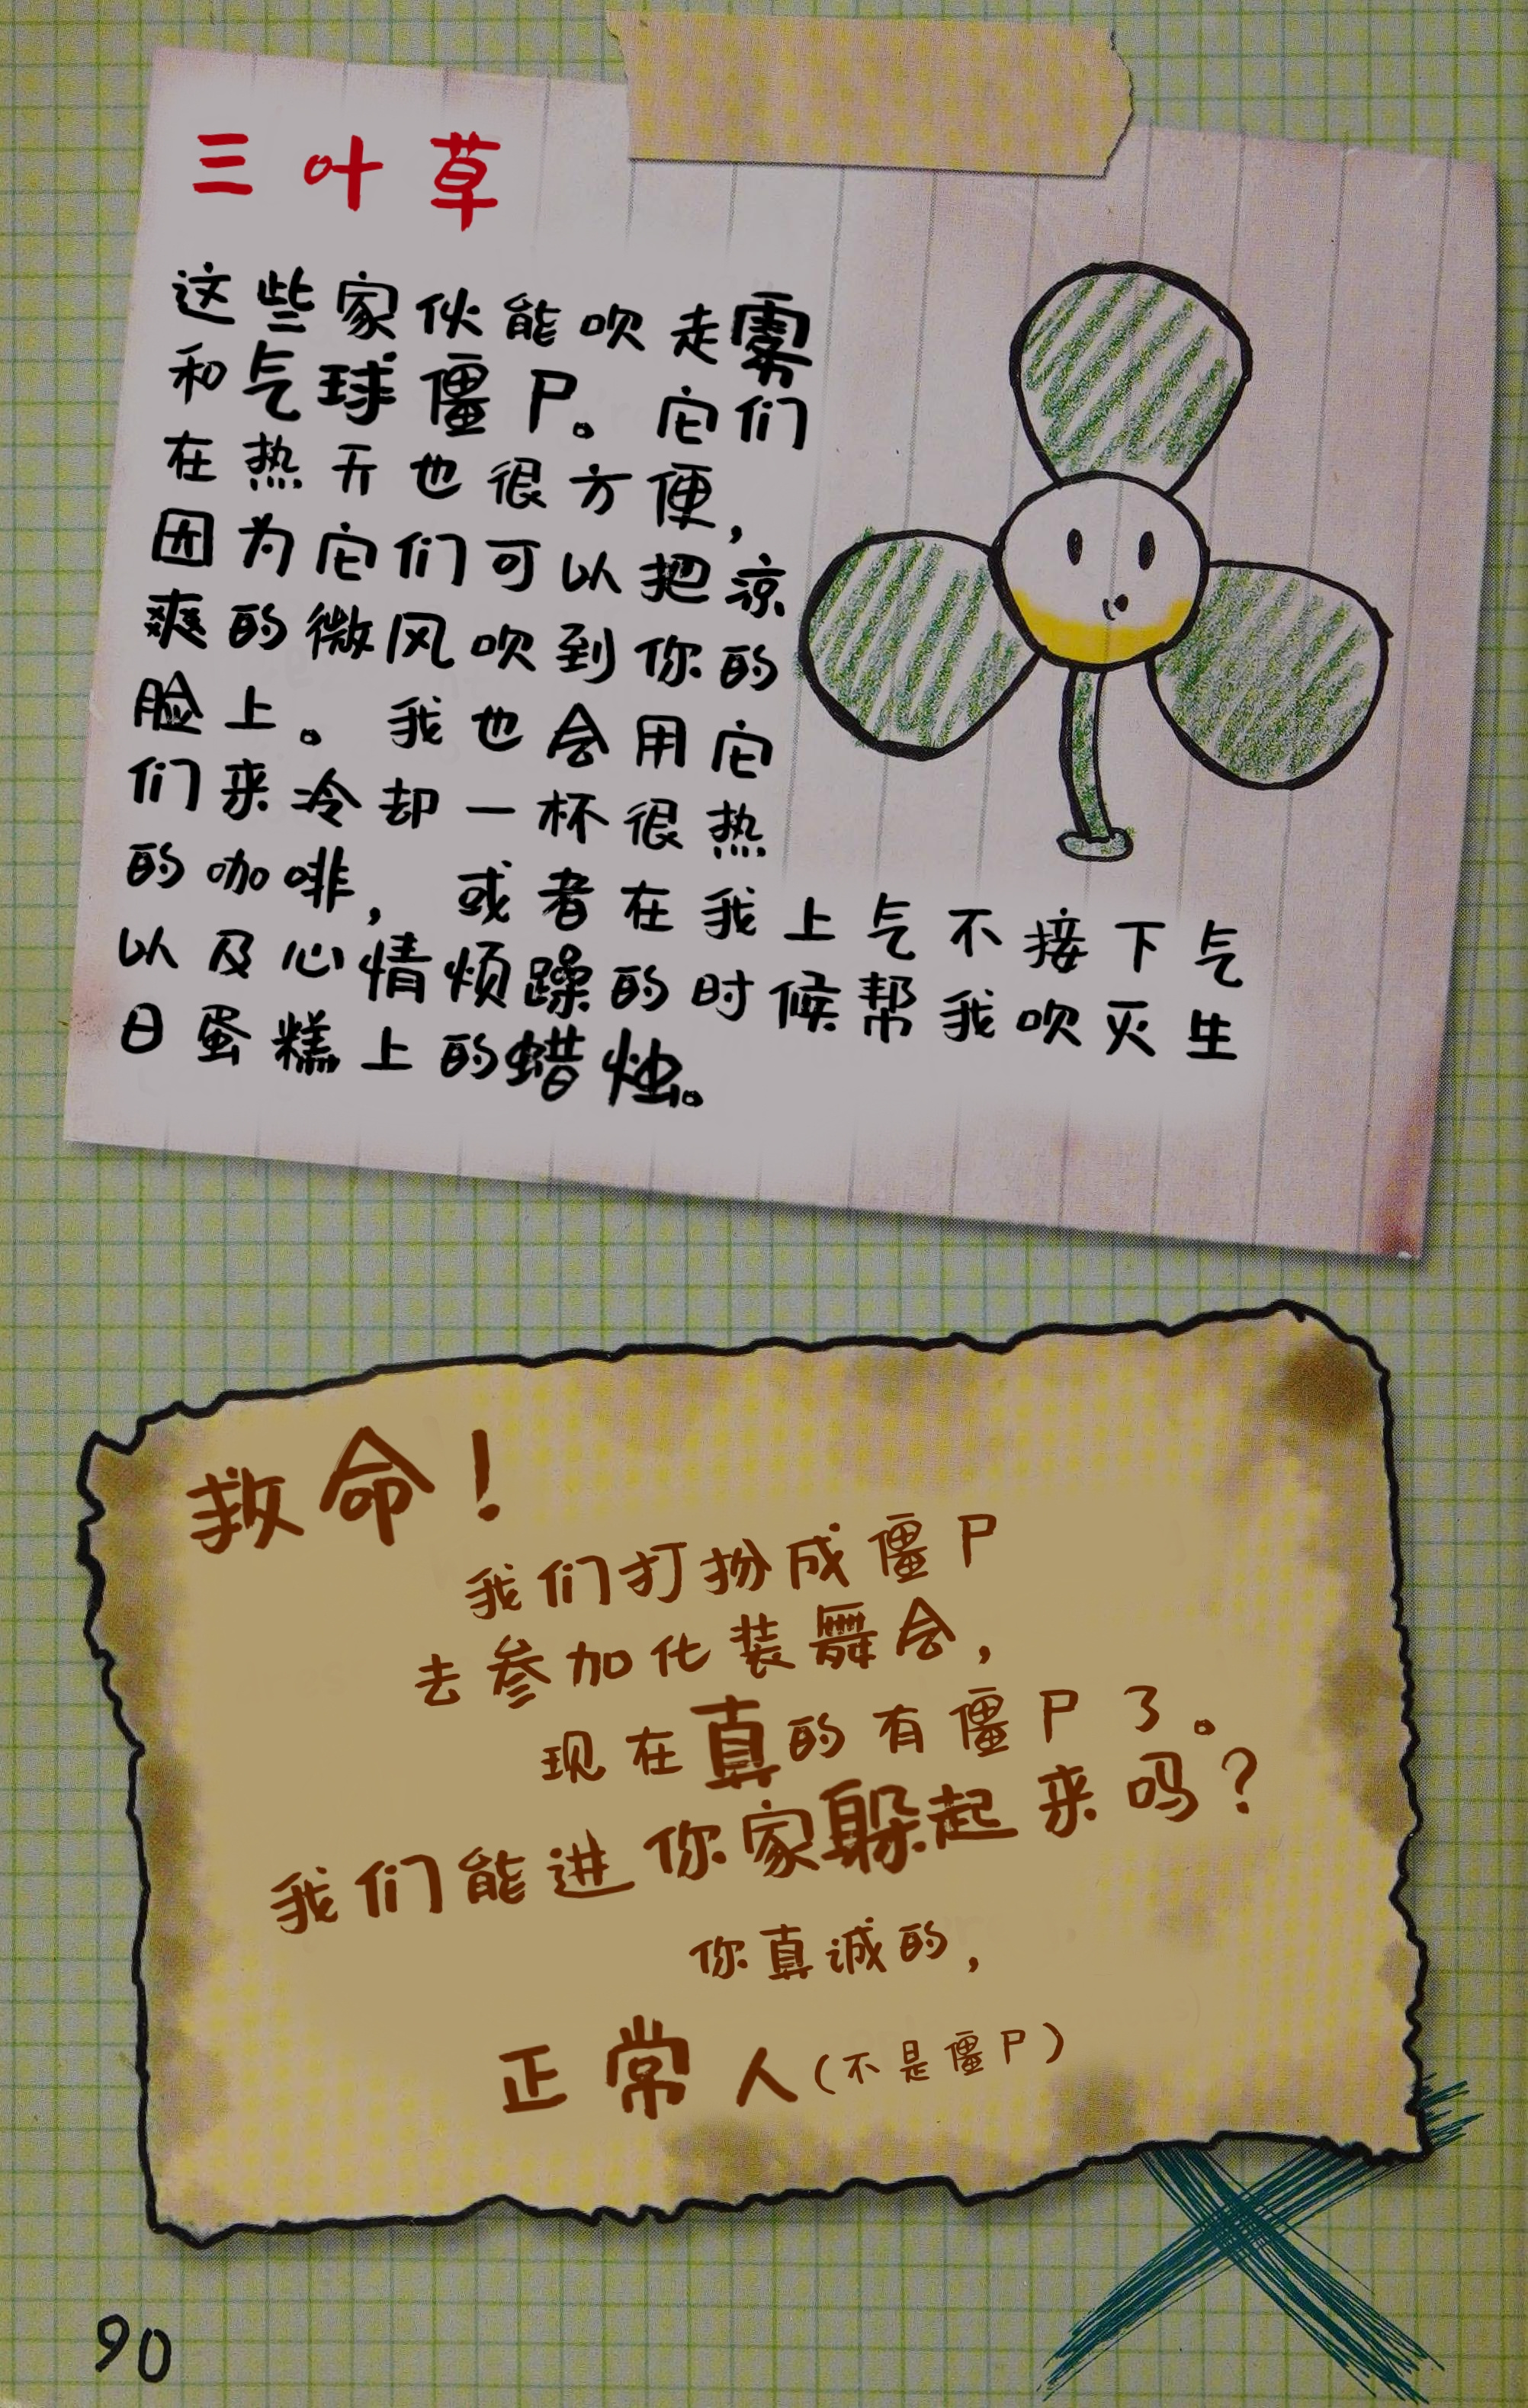 三叶草
这些家伙能吹走雾
和气球僵尸。它们
在热天也很方便，
因为它们可以把凉
爽的微风吹到你的
脸上。我也会用它
们来冷却一杯很热
的咖啡，或者在我上气不接下气
以及心情烦躁的时候帮我吹灭生
日蛋糕上的蜡烛。
救命！
我们打扮成僵尸
去参加化装舞会，
现在真的有僵尸了。
我们能进你家躲起来吗？
你真诚的，
正常人（不是僵尸）
90